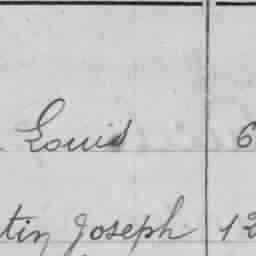 Louis 6
tin Joseph 12